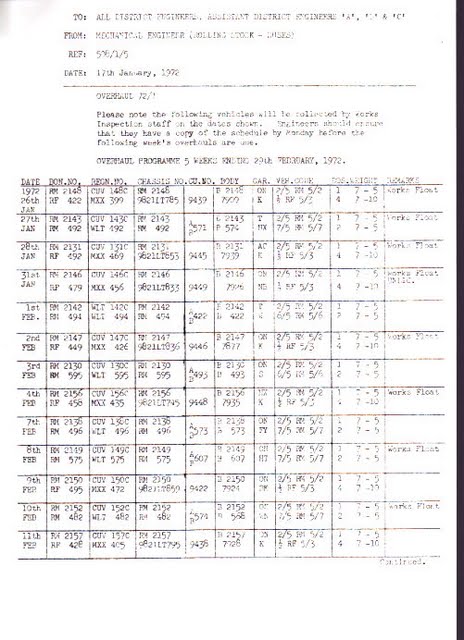 TO: ALL DISTRICT ENGINEERS, ASSISTANT DISTRICT ENGINEERS 'A', & 'C'
FROM: MECHANICAL ENGINEER (ROLLING STOCK - BUSES)
REF: 598/1/5
DATE: 17th January, 1972
OVERHAUL
Please note the following vehicles will be collected by Works
Inspection staff on the dates shown. Engineers should ensure
that they have a copy of the schedule by Monday before the
following week's overhauls are due.
OVERHAUL PROGRAMME 5 WEEKS ENDING 29th FEBRUARY, 1972.
DATE BON.NO. REGN.NO. CHASSIS NO. CU.NO. BODY GAR. VEH.CODE WEIGHT REMARKS
1972 RM 2148 CUV 148C RM 2148 B 2148 ON 2/5 RM 5/2 1 7 - 5 Works Float
26th RF 422 MXX 399 9821LT785 9439 K RF 5/3 4 7 -10
JAN
27th RM 2143 CUV 143C RM 2143 2143 T 2/5 RM 5/2 1 7 - 5 Works Float
JAN RM 492 WLT 492 RM 492 571 574 7/5 RM 5/7 2 7 - 5
28th RM 2131 CUV 131C RM 2131 B 2131 AC 2/5 RM 5/2 1 7 - 5 Works Float
JAN RF 492 MXX 469 9821LT853 9445 7939 RF 5/3 4 7 -10
31st RM 2146 CUV 146C RM 2146 B 2146 2/5 RM 5/2 1 7 - 5 Works Float
JAN RF 479 MXX 456 9821LT833 9449 RF 5/3 4 7 -10
1st RM 2142 WLT 142C RM 2142 B 2142 T 2/5 RM 5/2 1 7 - 5
FEB. RM 494 WLT 494 RM 494 422 422 6/5 RM 5/6 2 7 - 5
2nd RM 2147 CUV 147C RM 2147 B 2147 ON 2/5 RM 5/2 1 7 - 5 Works Float
FEB RF 449 MXX 426 9821LT836 9446 7877 RF 5/3 4 7 -10
3rd RM 2130 CUV 130C RM 2130 B 2130 ON 2/5 RM 5/2 1 7 - 5
FEB RM 595 WLT 595 RM 595 493 493 6/5 RM 5/6 2 7 - 5
4th RM 2156 CUV 156C RM 2156 B 2156 2/5 RM 5/2 1 7 - 5 Works Float
FEB RF 458 MXX 435 9821LT745 9448 7935 K RF 5/3 4 7 -10
7th RM 2136 CUV 136C RM 2136 B 2136 ON 2/5 RM 5/2 1 7 - 5
FEB RM 496 WLT 496 RM 496 573 573 7/5 RM 5/7 2 7 - 5
8th RM 2149 CUV 149C RM 2149 B 2149 2/5 RM 5/2 1 7 - 5 Works Float
FEB RM 575 WLT 575 RM 575 607 607 HT 7/5 RM 5/7 2 7 - 5
9th RM 2150 CUV 150C RM 2150 B 2150 ON 2/5 RM 5/2 1 7 - 5
FEB RF 495 MXX 472 9821LT850 9422 7924 RF 5/3 4 7 -10
10th RM 2152 CUV 152C RM 2152 B 2152 2/5 RM 5/2 1 7 - 5 Works Float
FEB RM 482 WLT 482 RM 482 574 568 7/5 RM 5/7 2 7 - 5
11th RM 2157 CUV 157C RM 2157 B 2157 ON 2/5 RM 5/2 1 7 - 5
FEB RF 428 MXX 405 9821LT795 9438 7928 K RF 5/3 4 7 -10
Continued.